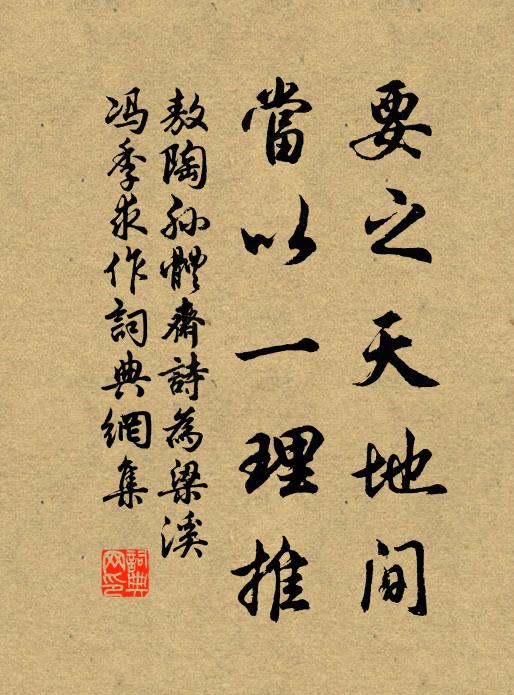 要之天地间
當以一理推
敖陶孙體齋詩為梁溪
冯季求作詞典網集
詞典网印